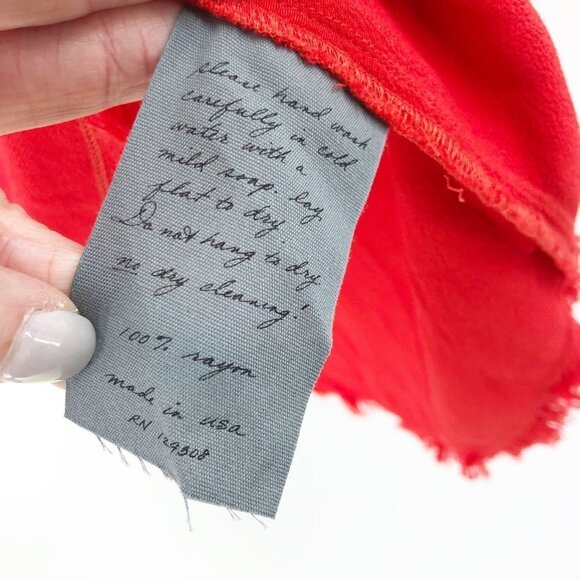 please hand wash
carefully in cold
water with a
mild soap. lay
flat to dry.
Do not hang to dry
no dry cleaning!
100% rayon
made in usa
RN 129308